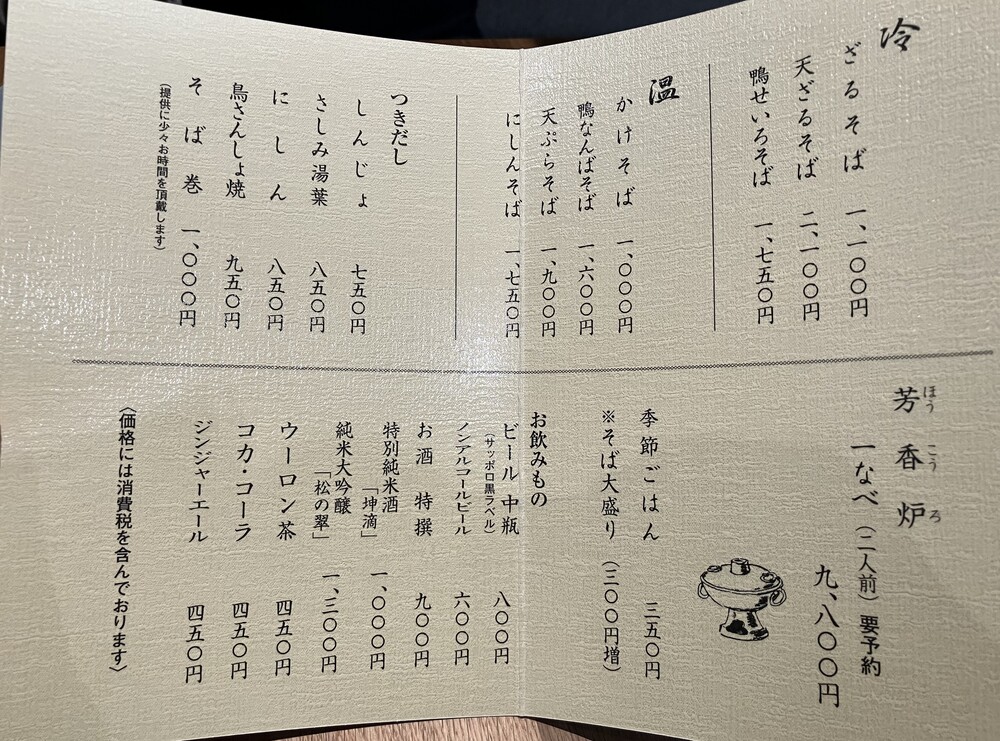 冷
ざるそば 一、一〇〇円
天ざるそば 二、一〇〇円
鴨せいろそば 一、七五〇円
温
かけそば 一、〇〇〇円
鴨なんばそば 一、六〇〇円
天ぷらそば 一、九〇〇円
にしんそば 一、七五〇円
つきだし
しんじょ 七五〇円
さしみ湯葉 八五〇円
にしん 八五〇円
鳥さんしょ焼 九五〇円
そば巻 一、〇〇〇円
(提供に少々お時間を頂戴します)
芳香炉
ほうこうろ
一なべ(二人前)要予約
九、八〇〇円
季節ごはん 三五〇円
※そば大盛り (三〇〇円増)
お飲みもの
ビール 中瓶 八〇〇円
(サッポロ黒ラベル)
ノンアルコールビール 六〇〇円
お酒 特撰 九〇〇円
特別純米酒
「坤滴」 一、〇〇〇円
純米大吟醸
「松の翠」 一、三〇〇円
ウーロン茶 四五〇円
コカ・コーラ 四五〇円
ジンジャーエール 四五〇円
〈価格には消費税を含んでおります〉